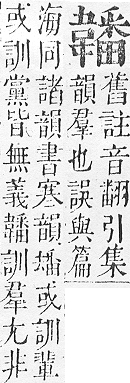 舊註音翻引集
韻羣也誤與篇
海同諸韻書寒韻或訓輩
或訓黨皆無義訓羣尤非